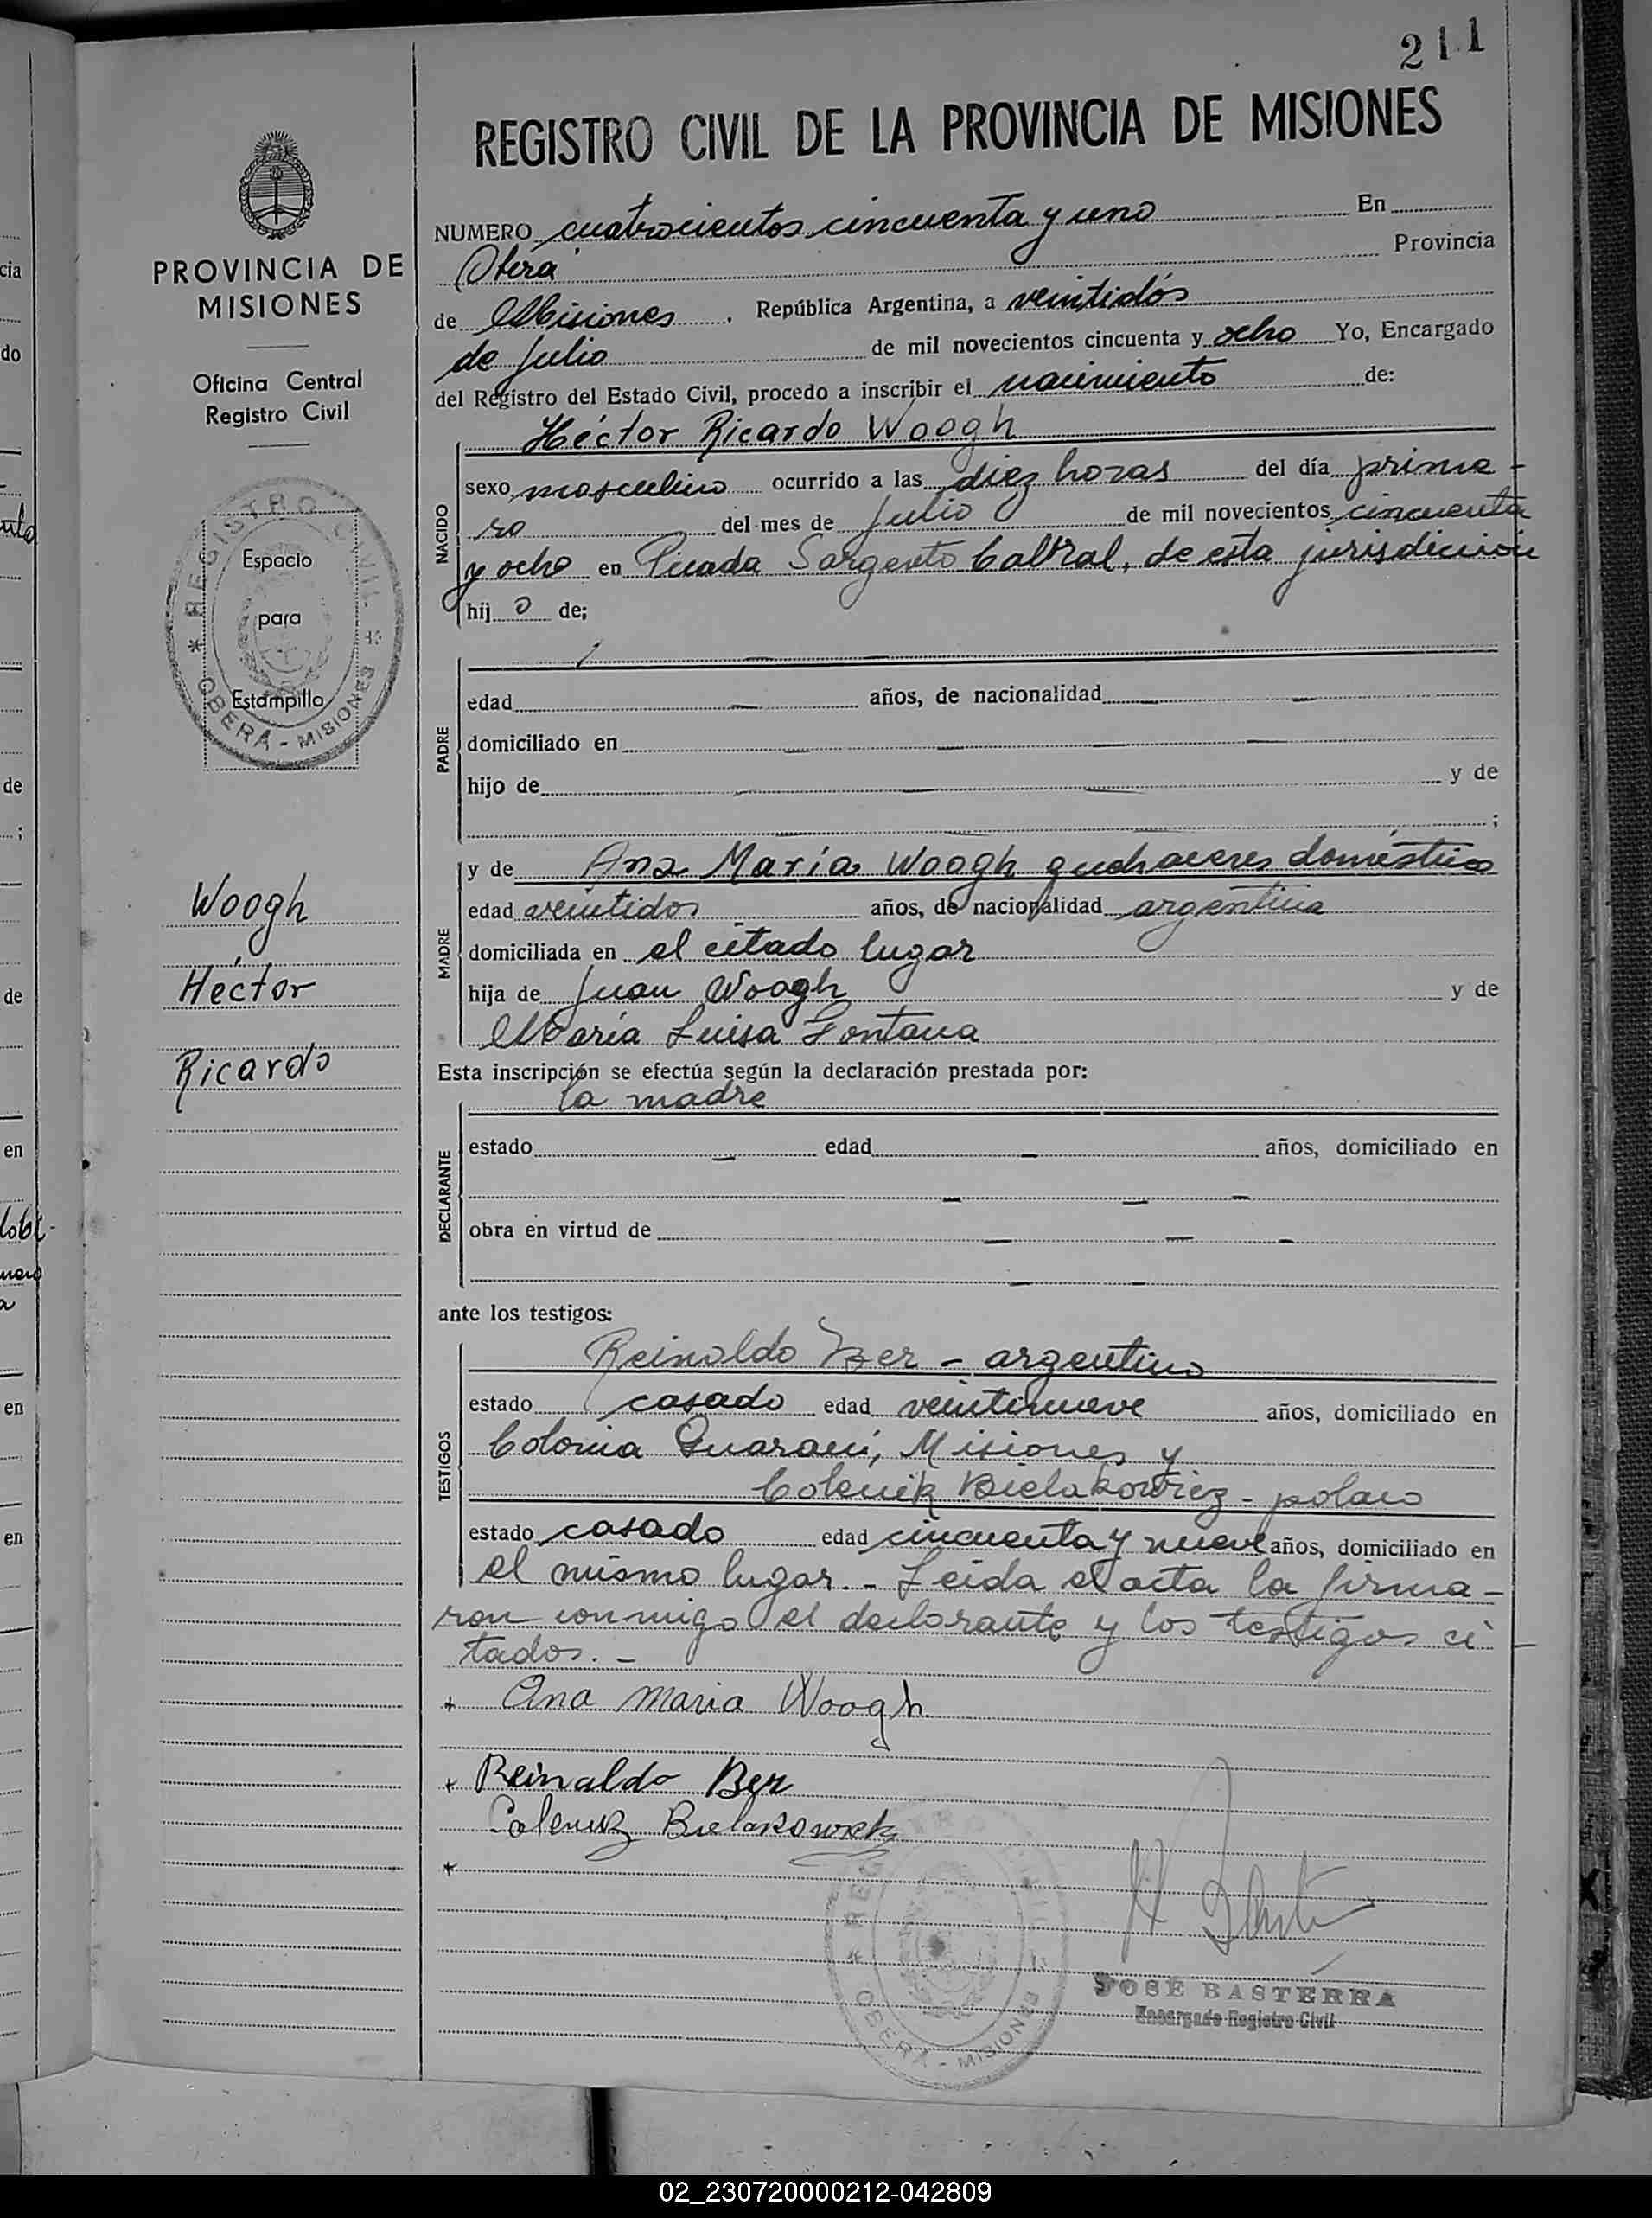 211
REGISTRO CIVIL DE LA PROVINCIA DE MISIONES
PROVINCIA DE
MISIONES
Oficina Central
Registro Civil
REGISTRO CIVIL
OBERÁ - MISIONES
Espacio
para
Estampilla
Woogh
Héctor
Ricardo
NUMERO cuatrocientos cincuenta y uno En
Oberá Provincia
de Misiones, República Argentina, a veintidós
de Julio de mil novecientos cincuenta y ocho Yo, Encargado
del Registro del Estado Civil, procedo a inscribir el nacimiento de:
NACIDO
Héctor Ricardo Woogh
sexo masculino ocurrido a las diez horas del día prime-
ro del mes de Julio de mil novecientos cincuenta
y ocho en Picada Sargento Cabral, de esta jurisdicción
hij o de;
PADRE
edad años, de nacionalidad
domiciliado en
hijo de y de
;
MADRE
y de Ana María Woogh quehaceres domésticos
edad veintidos años, de nacionalidad argentina
domiciliada en el citado lugar
hija de Juan Woogh y de
María Luisa Fontana
Esta inscripción se efectúa según la declaración prestada por:
la madre
DECLARANTE
estado edad años, domiciliado en
obra en virtud de
ante los testigos:
TESTIGOS
Reinaldo Ber - argentino
estado casado edad veintinueve años, domiciliado en
Colonia Guaraní, Misiones y
Colenik Bielakowicz - polaco
estado casado edad cincuenta y nueve años, domiciliado en
el mismo lugar.- Leida el acta la firma-
ron conmigo el declarante y los testigos ci-
tados.-
+ Ana Maria Woogh
+ Reinaldo Ber
Bielakowicz
+
OBERÁ - MISIONES
JOSÉ BASTERRA
Encargado Registro Civil
02_230720000212-042809